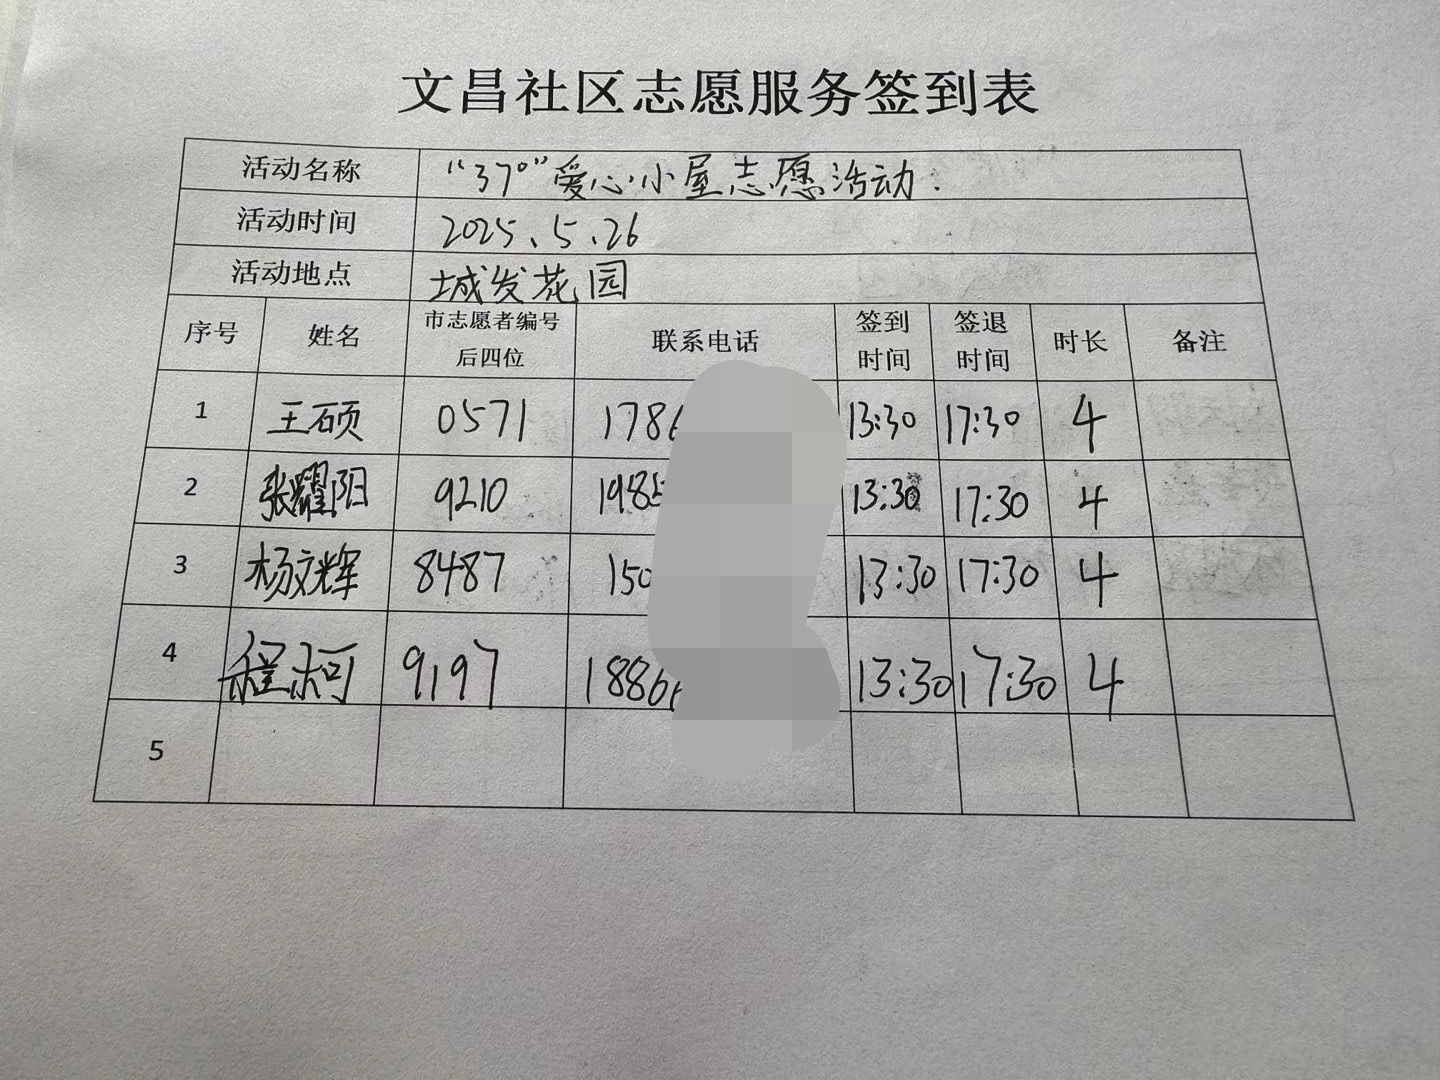 文昌社区志愿服务签到表
活动名称 “37°”爱心小屋志愿活动.
活动时间 2025、5、26
活动地点 城发花园
序号 姓名 市志愿者编号后四位 联系电话 签到时间 签退时间 时长 备注
1 王硕 0571 1786 13:30 17:30 4
2 张耀阳 9210 1985 13:30 17:30 4
3 杨文辉 8487 150 13:30 17:30 4
4 程柯 9197 1886 13:30 17:30 4
5